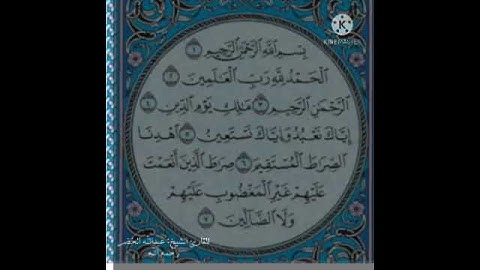 KINEMASTER
بِسْمِ ٱللَّهِ ٱلرَّحْمَٰنِ ٱلرَّحِيمِ ١
ٱلْحَمْدُ لِلَّهِ رَبِّ ٱلْعَٰلَمِينَ ٢
ٱلرَّحْمَٰنِ ٱلرَّحِيمِ ٣ مَٰلِكِ يَوْمِ ٱلدِّينِ ٤
إِيَّاكَ نَعْبُدُ وَإِيَّاكَ نَسْتَعِينُ ٥ ٱهْدِنَا
ٱلصِّرَٰطَ ٱلْمُسْتَقِيمَ ٦ صِرَٰطَ ٱلَّذِينَ أَنْعَمْتَ
عَلَيْهِمْ غَيْرِ ٱلْمَغْضُوبِ عَلَيْهِمْ
وَلَا ٱلضَّآلِّينَ ٧
القارئ الشيخ: عبدالله الخضر
رحمه الله